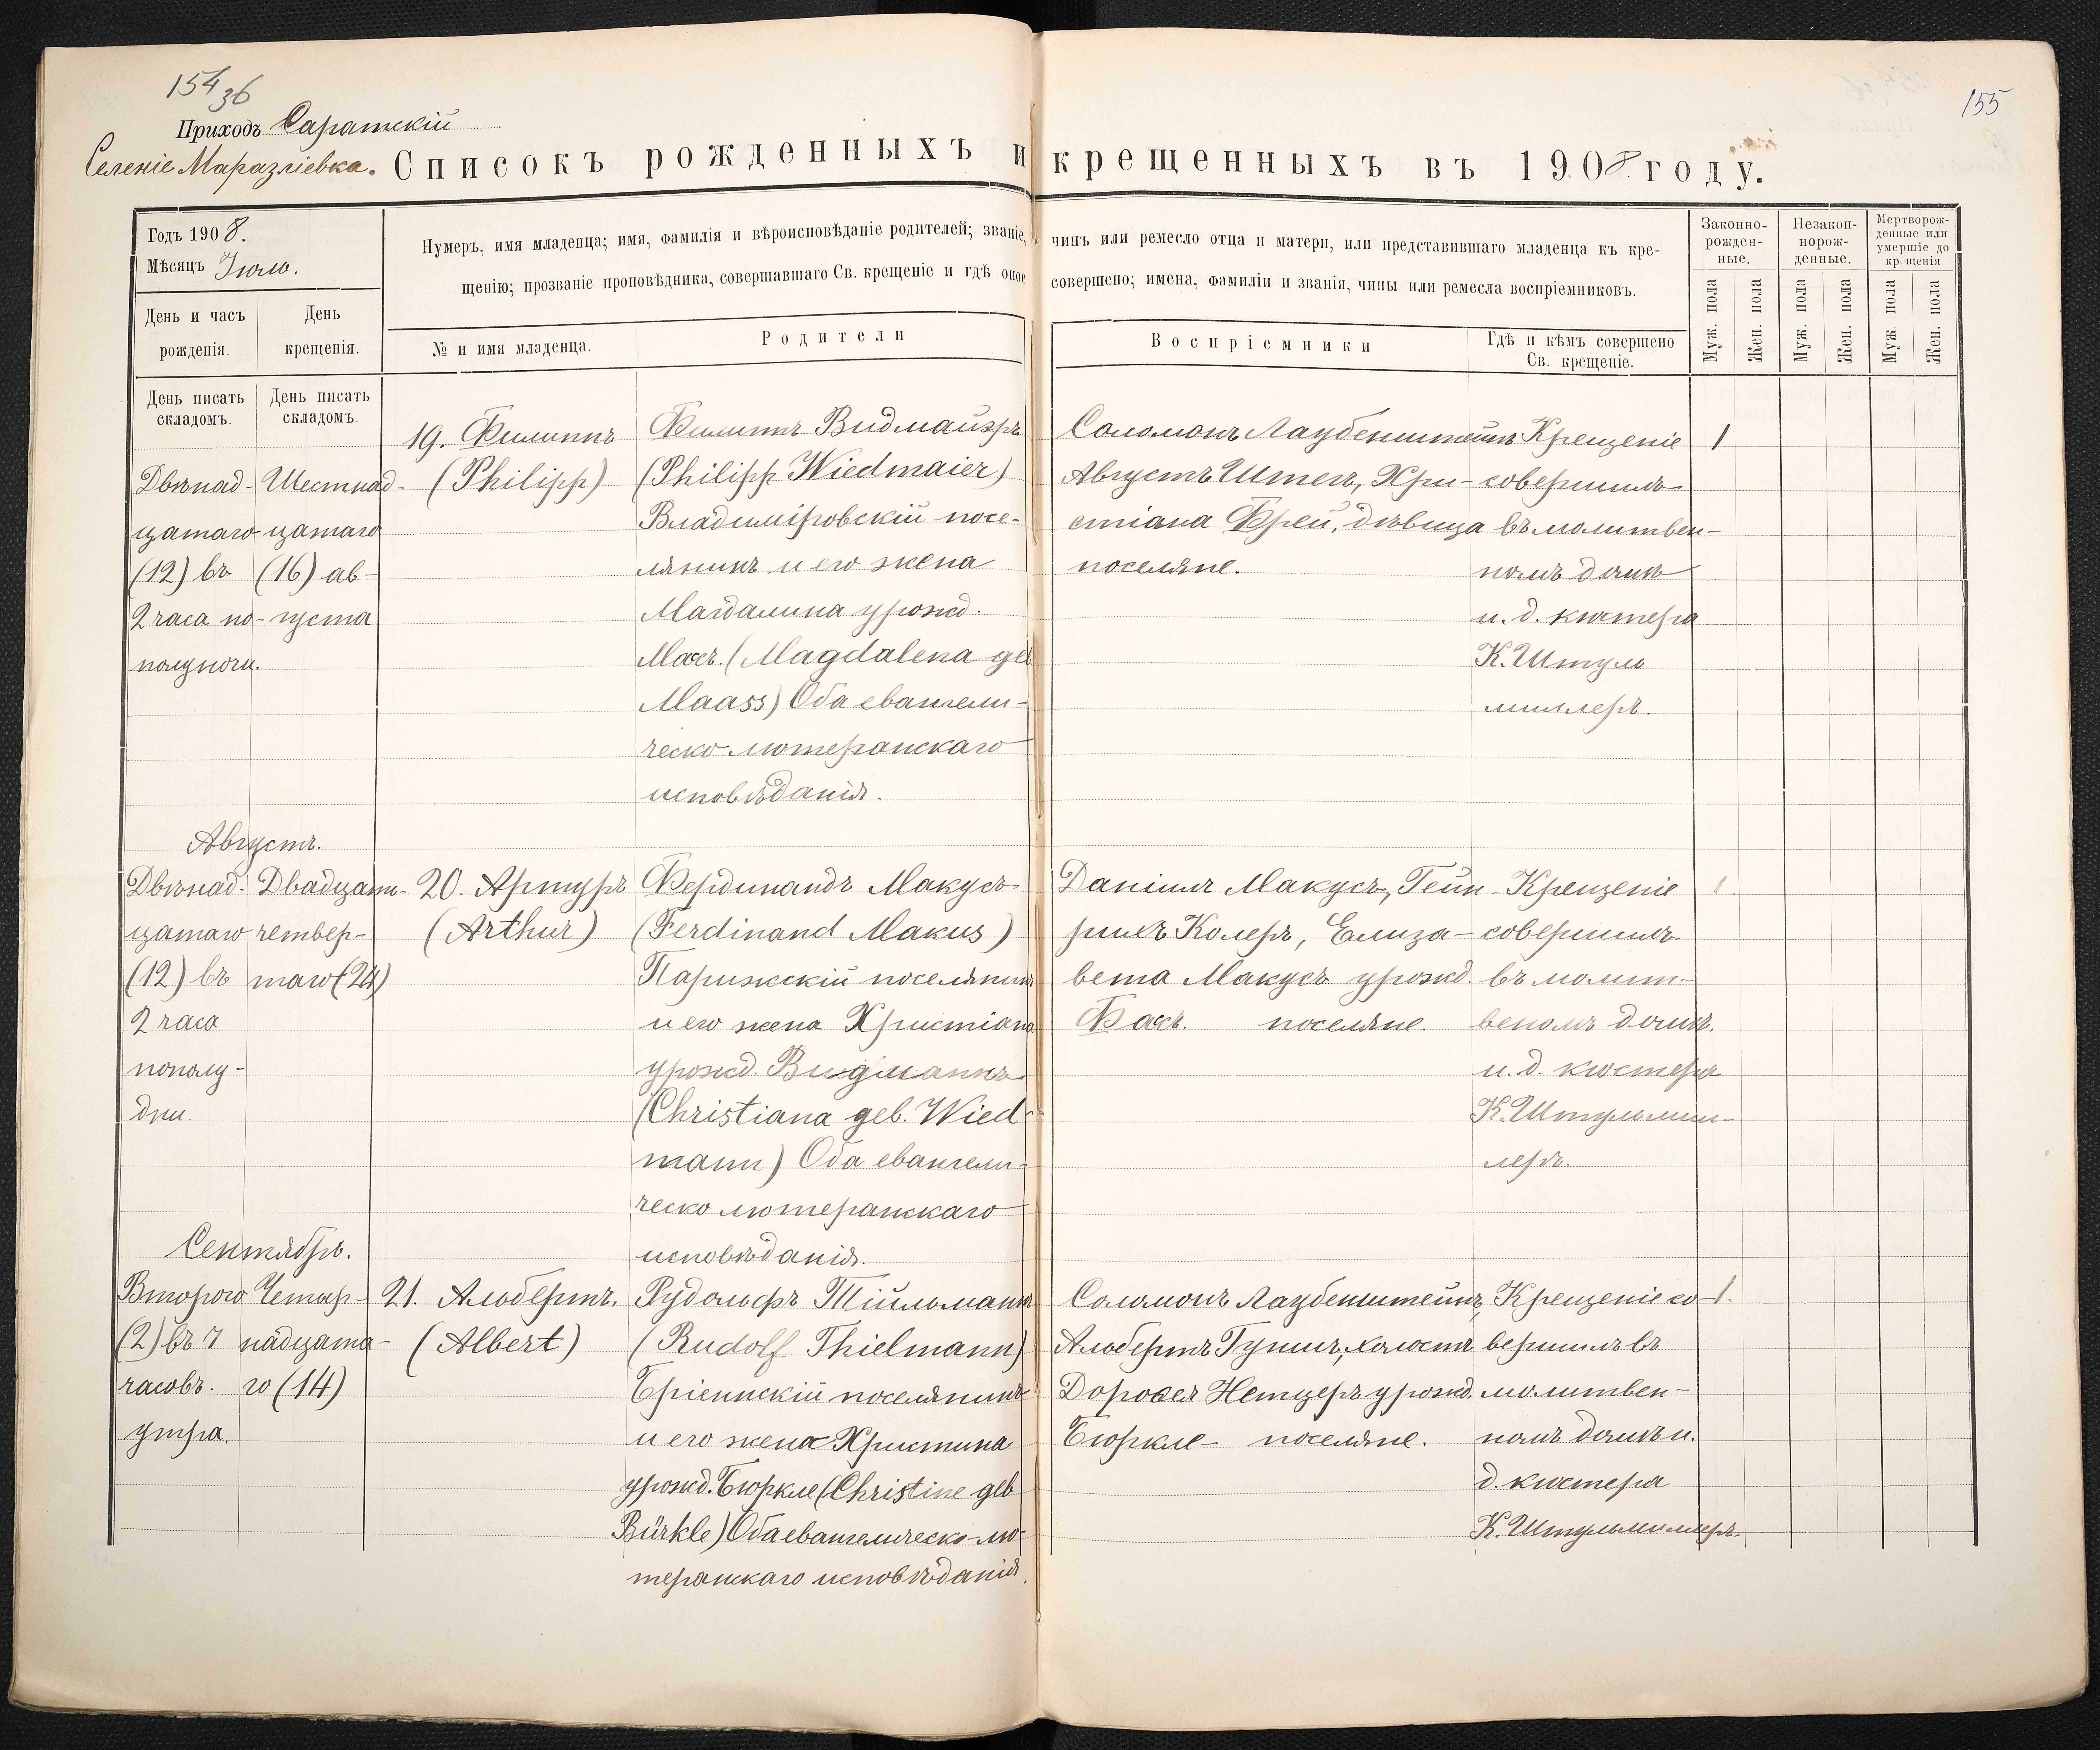 154
36
155
Приходъ Саратскій
Селеніе Маразліевка.
Списокъ рожденныхъ и крещенныхъ въ 1908 году.
Годъ 1908.
Мѣсяцъ Іюль.
День и часъ рожденія.
День крещенія.
Нумеръ, имя младенца; имя, фамилія и вѣроисповѣданіе родителей; званіе, чинъ или ремесло отца и матери, или представившаго младенца къ кре-
щенію; прозваніе проповѣдника, совершавшаго Св. крещеніе и гдѣ оное совершено; имена, фамиліи и званія, чины или ремесла воспріемниковъ.
№ и имя младенца.
Родители
Воспріемники
Гдѣ и кѣмъ совершено
Св. крещеніе.
Законно-
рожден-
ные.
Незакон-
норож-
денные.
Мертворож-
денные или
умершіе до
крещенія
Муж. пола
Жен. пола
Муж. пола
Жен. пола
Муж. пола
Жен. пола
День писать
складомъ.
День писать
складомъ.
Двѣнад-
цатаго
(12) въ
2 часа по-
полуночи.
Шестнад-
цатаго
(16) ав-
густа
19. Филиппъ
(Philipp)
Филиппъ Видмайэръ
(Philipp Wiedmaier)
Владиміровскій посе-
лянинъ и его жена
Магдалина урожд.
Маасъ. (Magdalena geb
Maass) Оба евангели-
ческо лютеранскаго
исповѣданія.
Соломонъ Лаубенштейнъ
Августъ Штегъ, Хри-
стіана Фрей, дѣвица
поселяне.
Крещеніе
совершилъ
въ молитвен-
номъ домѣ
и. д. кюстера
К. Штуль
миллеръ.
1
Августъ.
Двѣнад-
цатаго
(12) въ
2 часа
пополу-
дни.
Двадцать
четвер-
таго (24)
20. Артуръ
(Arthur)
Фердинандъ Макусъ
(Ferdinand Makus)
Парижскій поселянинъ
и его жена Христіана
урожд. Видманнъ
(Christiana geb. Wied-
mann) Оба евангели-
ческо лютеранскаго
исповѣданія.
Даніилъ Макусъ, Гейн-
рихъ Колеръ, Елиза-
вета Макусъ урожд.
Фасъ. поселяне.
Крещеніе
совершилъ
въ молит-
веномъ домѣ.
и. д. кюстера
К. Штульмил-
леръ.
1
Сентябрь.
Второго
(2) въ 7
часовъ.
утра.
Четыр-
надцата-
го (14)
21. Альбертъ.
(Albert)
Рудольфъ Тільманнъ
(Rudolf Thielmann)
Бріеннскій поселянинъ
и его жена Христина
урожд. Бюркле (Christine geb
Bürkle) Оба евангелическо-лю-
теранскаго исповѣданія.
Соломонъ Лаубенштейнъ,
Альбертъ Гутшъ, холостъ
Доровея Нетцеръ урожд.
Бюркле - поселяне.
Крещеніе со-
вершилъ въ
молитвен-
номъ домѣ и.
д. кюстера
К. Штульмиллеръ.
1.